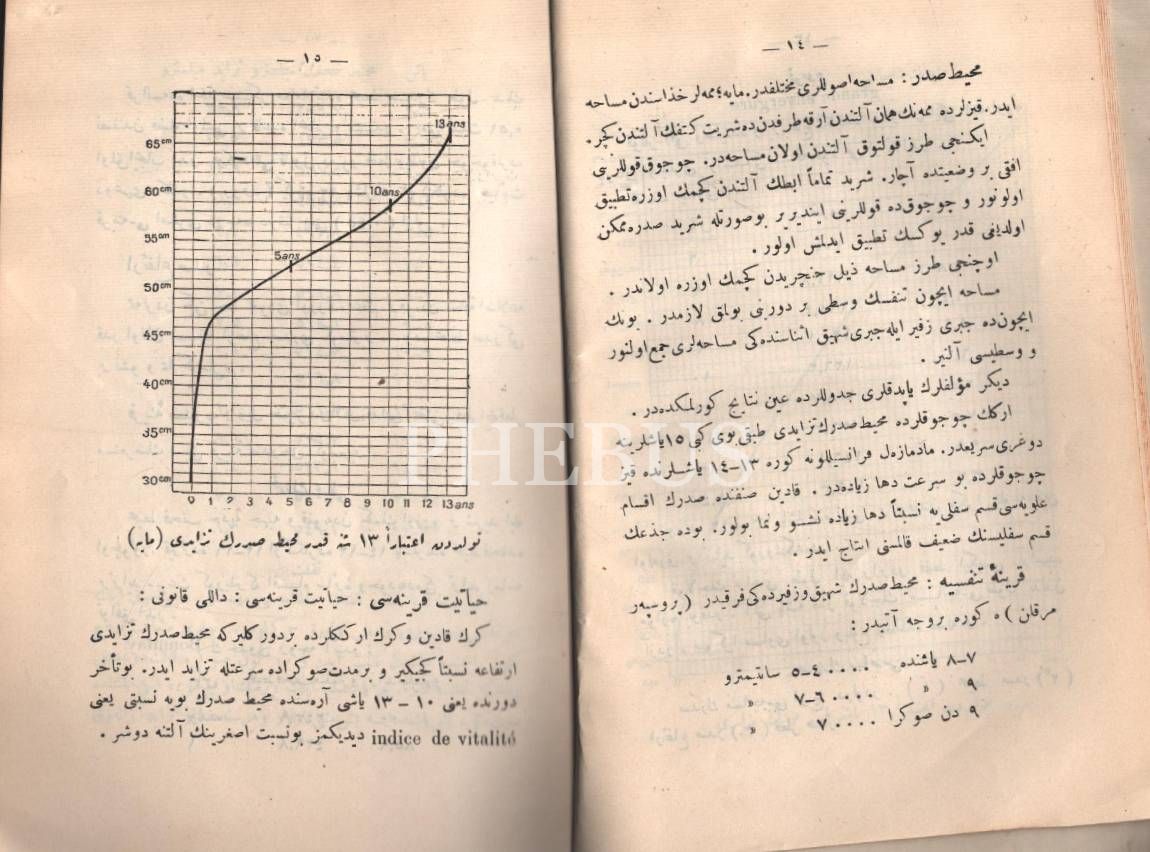 — ١٤ —
محيط صدر : مساحه اصوللرى مختلفدر. مايه؛ ممه‌لر خذاسندن مساحه
ايدر. قيزلرده ممه‌نك همان آلتندن آرقه طرفدن ده شريت كتفك آلتندن كچر.
ايكنجى طرز قولتوق آلتندن اولان مساحه‌در. چوجوق قوللرينى
افقى بر وضعيتده آچار. شريد تماماً ابطك آلتندن كچمك اوزره تطبيق
اولونور و چوجوق ده قوللرينى اينديرير بو صورتله شريد صدره ممكن
اولديغى قدر يوكسك تطبيق ايدلمش اولور .
اوچنجى طرز مساحه ذيل خنجريدن كچمك اوزره اولاندر .
مساحه ايچون تنفسك وسطى بر دورينى بولمق لازمدر . بونك
ايچون ده جبرى زفير ايله جبرى شهيق اثناسنده‌كى مساحه‌لرى جمع اولنور
و وسطيسى آلنير .
ديكر مؤلفلرك ياپدقلرى جدوللرده عين نتايج كورلمكده‌در .
اركك چوجوقلرده محيط صدرك تزايدى طبقى بوى كبى ١٥ ياشلرينه
دوغرى سريعدر. مادمازه‌ل فرانسيللونه كوره ١٣-١٤ ياشلرنده قيز
چوجوقلرده بو سرعت دها زياده‌در . قادين صنفنده صدرك اقسام
علويه‌سى قسم سفلى‌يه نسبتاً دها زياده نشو و نما بولور. بوده جذعك
قسم سفليسنك ضعيف قالمسنى انتاج ايدر .
قرينۀ تنفسيه : محيط صدرك شهيق و زفيرده‌كى فرقيدر (پروسپه‌ر
مرقان) ه كوره بروجه آتيدر :
٧-٨ ياشنده ٠٠٠٠ ٤-٥ سانتيمترو
٩ » ٠٠٠٠ ٦-٧ »
٩ دن صوكرا ٠٠٠٠ ٧ »
— ١٥ —
65cm
60cm
55cm
50cm
45cm
40cm
35cm
30cm
13ans
10ans
5ans
0 1 2 3 4 5 6 7 8 9 10 11 12 13ans
تولددن اعتباراً ١٣ قدر محيط صدرك تزايدى (مايه)
حياتيت قرينه‌سى : حياتيت قرينه‌سى : داللى قانونى :
كرك قادين و كرك اركلكرده بر دور كليركه محيط صدرك تزايدى
ارتفاعه نسبتاً كجيكير و بر مدت صوكراده سرعتله تزايد ايدر. بو تأخر
دورنده يعنى ١٠ – ١٣ ياشى آره‌سنده محيط صدرك بويه نسبتى يعنى
indice de vitalité ديديكمز بو نسبت اصغرينك آلتنه دوشر .
PHEBUS